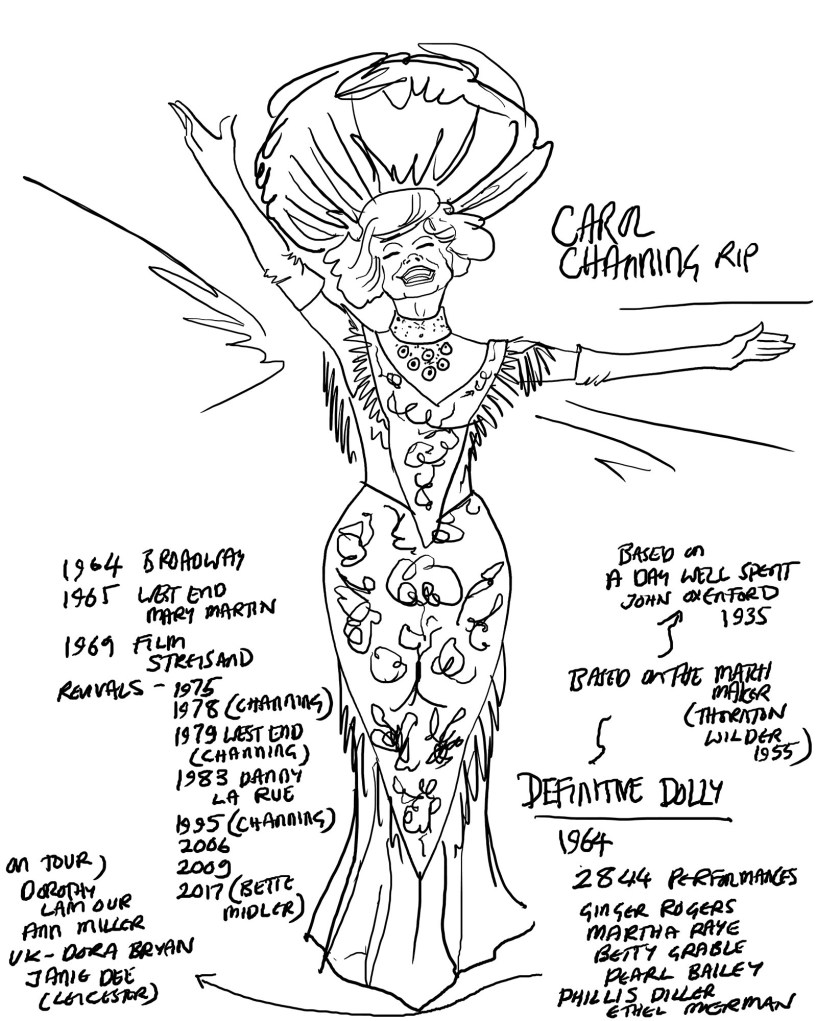 CAROL
CHANNING RIP
1964 BROADWAY
1965 WEST END
MARY MARTIN
1969 FILM
STREISAND
REVIVALS - 1975
1978 (CHANNING)
1979 WEST END
(CHANNING)
1983 DANNY
LA RUE
1995 (CHANNING)
2006
2009
2017 (BETTE
MIDLER)
ON TOUR)
DOROTHY
LAMOUR
ANN MILLER
UK - DORA BRYAN
JANIE DEE
(LEICESTER)
BASED ON
A DAY WELL SPENT
JOHN OXENFORD
1935
BASED ON THE MATCH
MAKER
(THORNTON
WILDER
1955)
DEFINITIVE DOLLY
1964
2844 PERFORMANCES
GINGER ROGERS
MARTHA RAYE
BETTY GRABLE
PEARL BAILEY
PHILLIS DILLER
ETHEL MERMAN